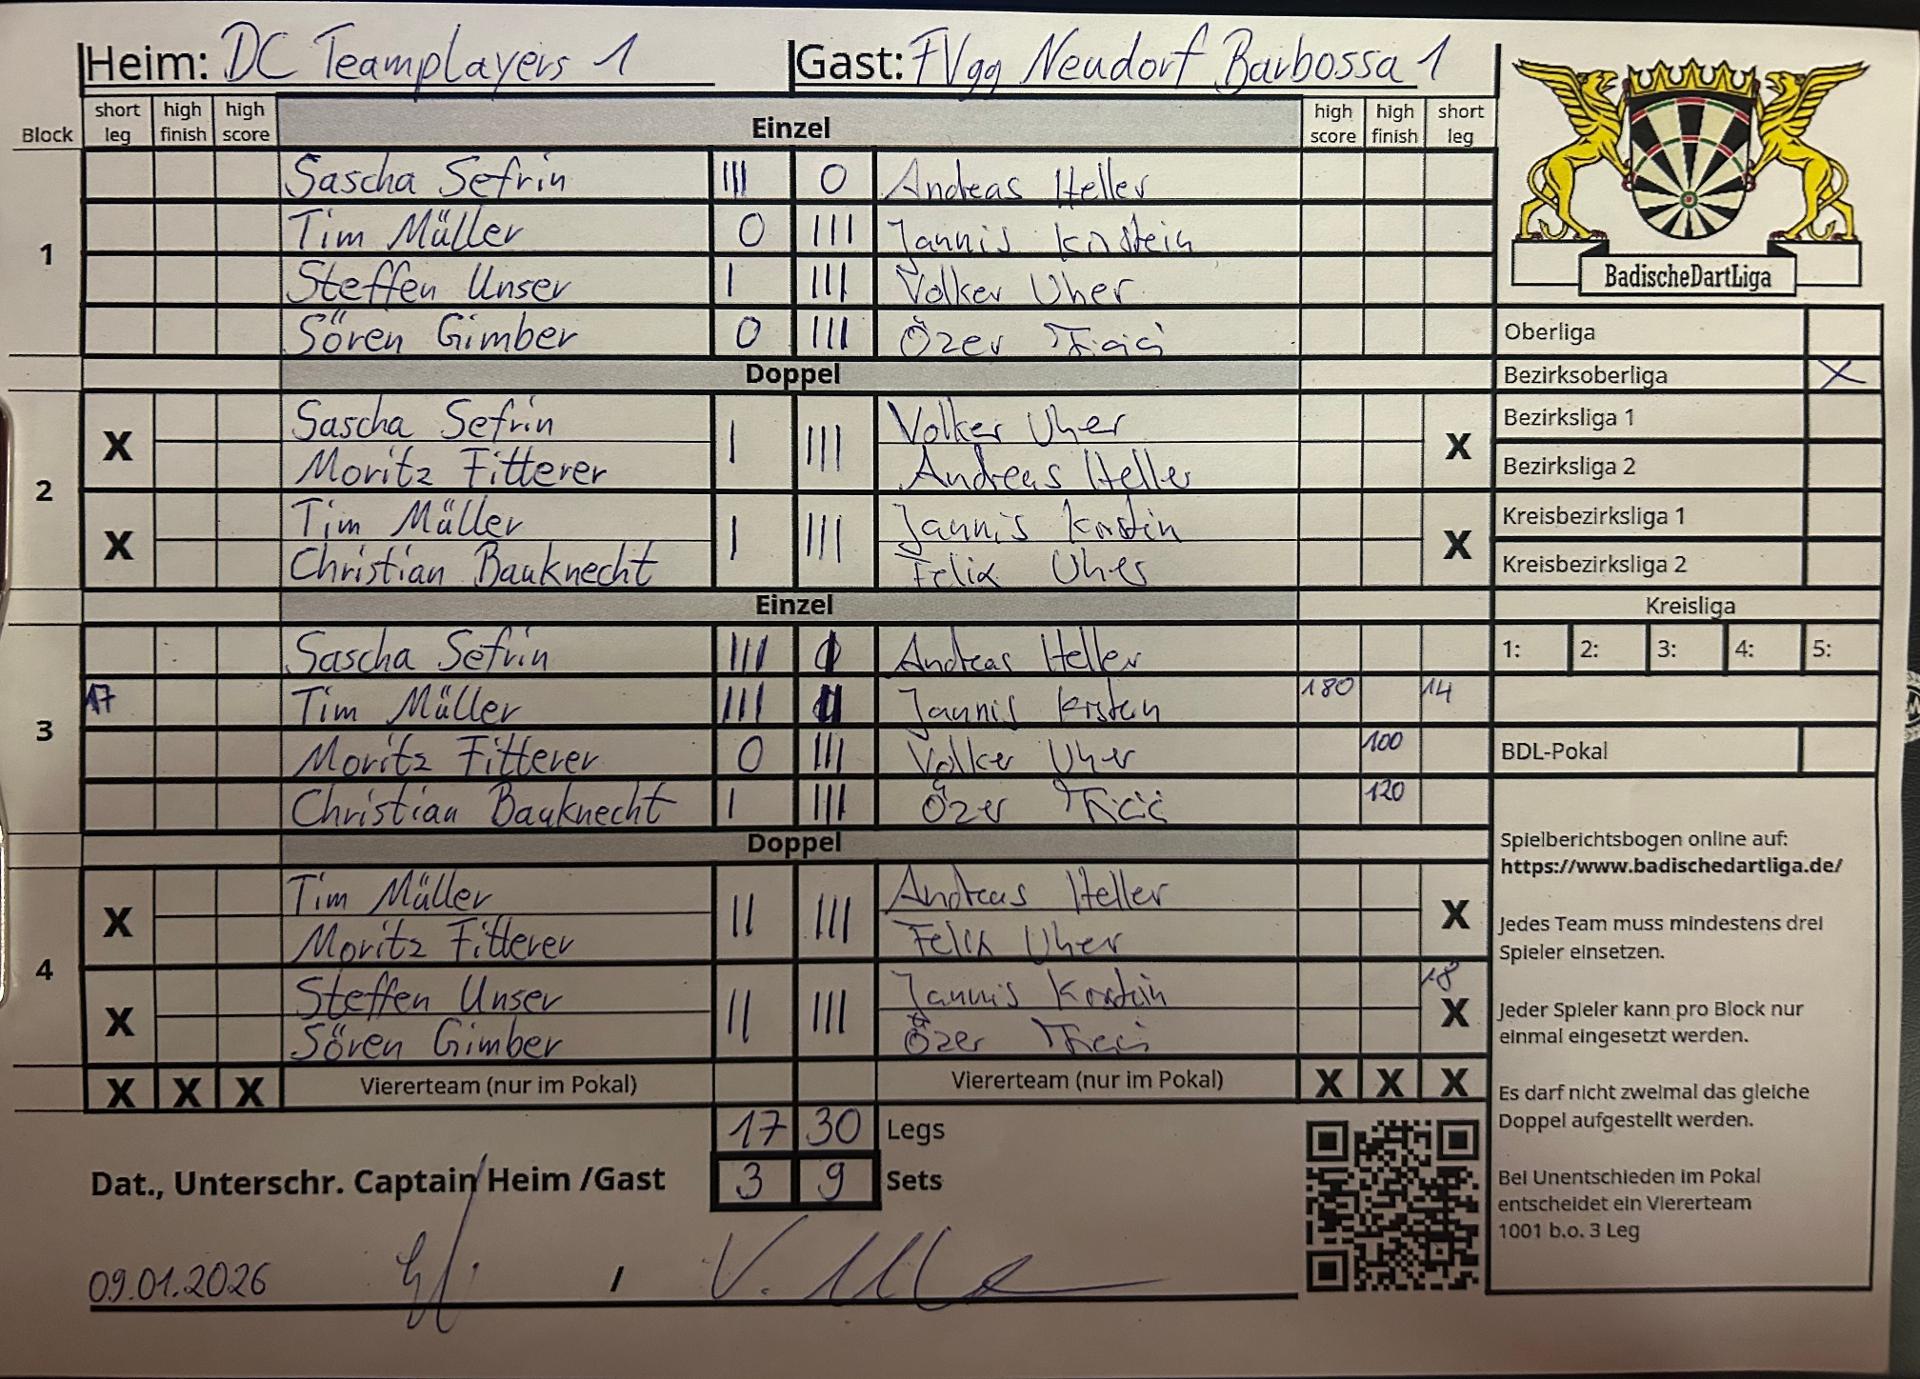 Heim: DC Teamplayers 1 Gast: FVgg Neudorf Barbossa 1
Block short leg high finish high score Einzel high score high finish short leg
1
Sascha Sefrin III 0 Andreas Heller
Tim Müller 0 III Jannis
Steffen Unser I III Volker Uher
Sören Gimber 0 III Özer
Doppel
2
X Sascha Sefrin I III Volker Uher X
Moritz Fitterer Andreas Heller
X Tim Müller I III Jannis X
Christian Bauknecht Felix Uher
Einzel
3
Sascha Sefrin III Andreas Heller
17 Tim Müller III II Jannis 180 14
Moritz Fitterer 0 III Volker Uher 100
Christian Bauknecht I III Özer 120
Doppel
4
X Tim Müller II III Andreas Heller X
Moritz Fitterer Felix Uher
X Steffen Unser II III Jannis 18 X
Sören Gimber Özer
X X X Viererteam (nur im Pokal) Viererteam (nur im Pokal) X X X
17 30 Legs
3 9 Sets
Dat., Unterschr. Captain Heim /Gast
09.01.2026 /
BadischeDartLiga
Oberliga
Bezirksoberliga X
Bezirksliga 1
Bezirksliga 2
Kreisbezirksliga 1
Kreisbezirksliga 2
Kreisliga
1: 2: 3: 4: 5:
BDL-Pokal
Spielberichtsbogen online auf:
https://www.badischedartliga.de/
Jedes Team muss mindestens drei
Spieler einsetzen.
Jeder Spieler kann pro Block nur
einmal eingesetzt werden.
Es darf nicht zweimal das gleiche
Doppel aufgestellt werden.
Bei Unentschieden im Pokal
entscheidet ein Viererteam
1001 b.o. 3 Leg